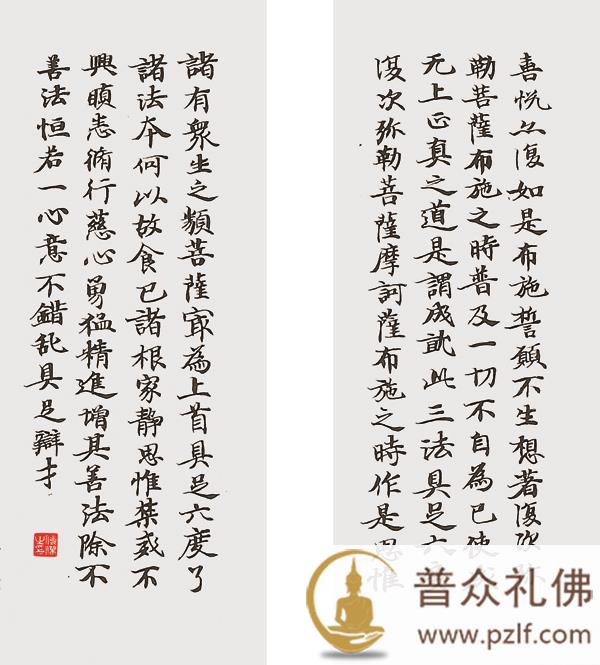 喜悦亦復如是布施誓願不生想著復次弥
勒菩薩布施之時普及一切不自為已使
无上正真之道是謂成就此三法具足六度
復次弥勒菩薩摩訶薩布施之時作是思惟
諸有眾生之類菩薩冣為上首具足六度了
諸法本何以故食已諸根寂静思惟禁戒不
興瞋恚脩行慈心勇猛精進增其善法除不
善法恒若一心意不錯乱具足辯才
普众礼佛
www.pzlf.com